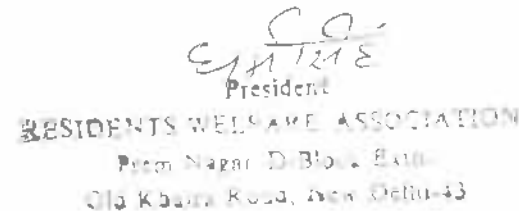 धर्म सिंह
President
RESIDENTS WELFARE ASSOCIATION
Prem Nagar D Block Extn.
Old Khaira Road, New Delhi-43